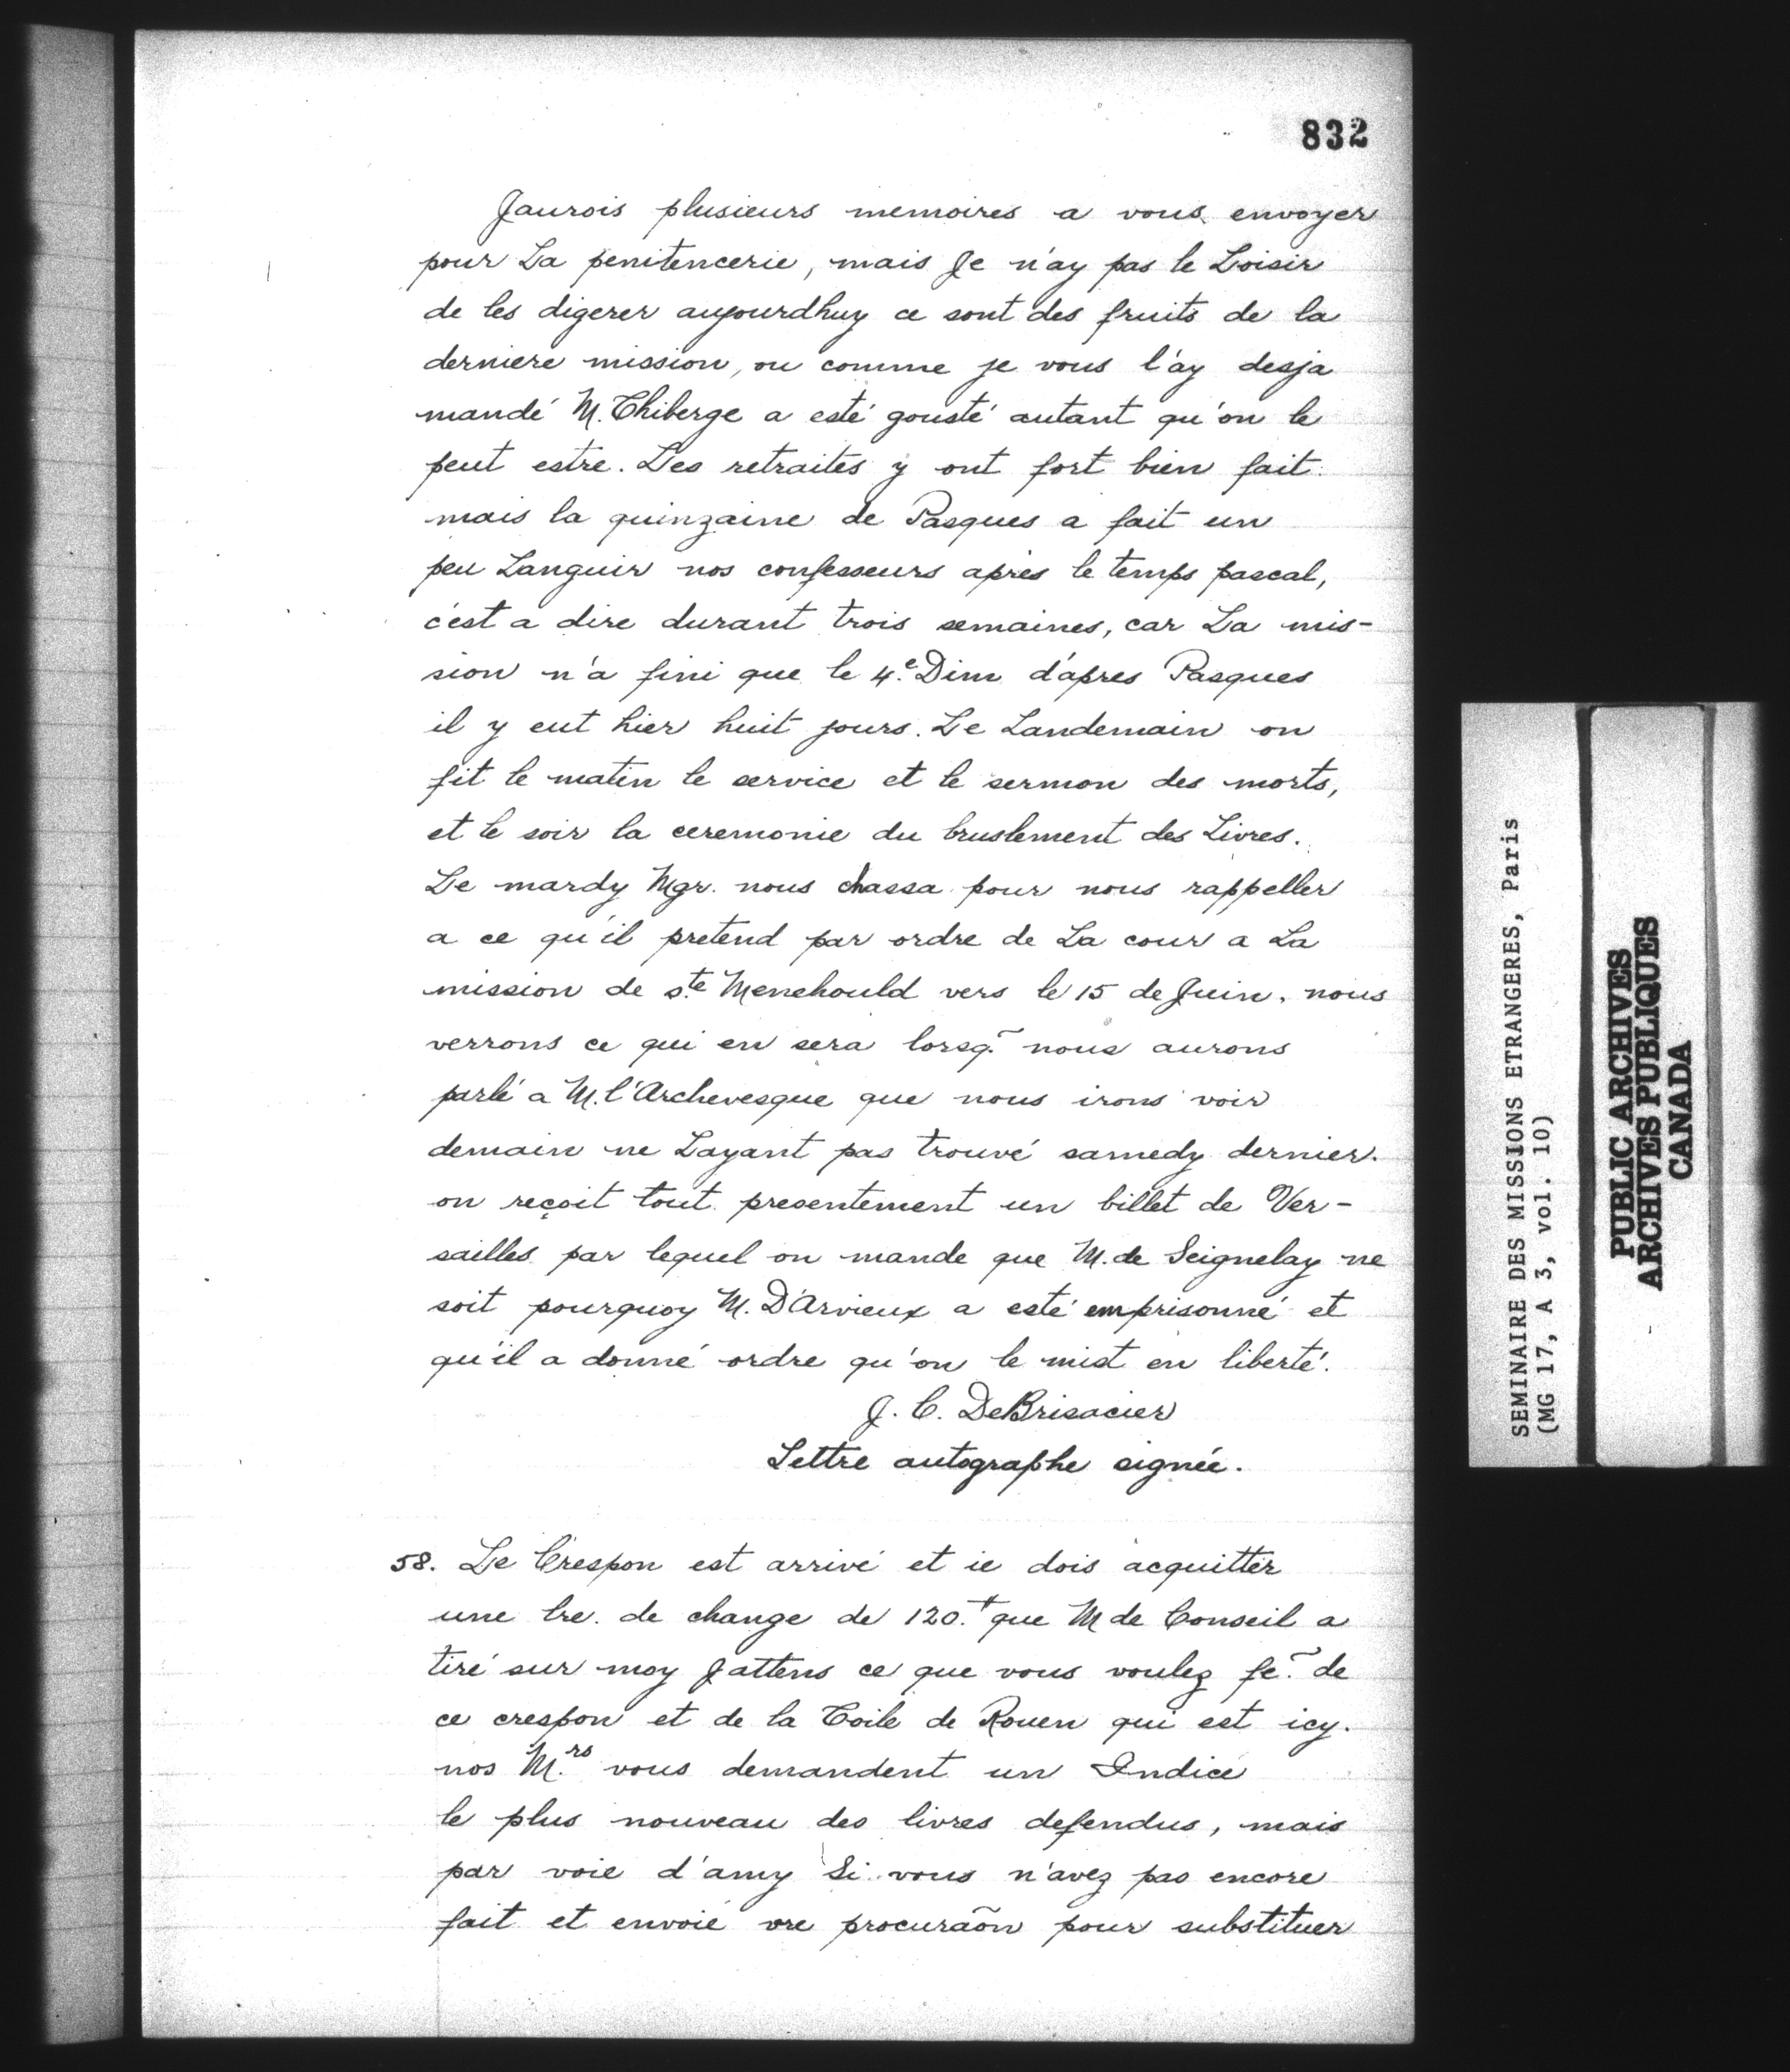 832
Jaurois plusieurs memoires a vous envoyer
pour La penitencerie, mais Je n'ay pas le Loisir
de les digerer aujourdhuy ce sont des fruits de la
derniere mission, ou comme je vous l'ay desja
mandé M. Thiberge a esté gousté autant qu'on le
peut estre. Les retraites y ont fort bien fait.
mais la quinzaine de Pasques a fait un
peu Languir nos confesseurs après le temps pascal,
c'est a dire durant trois semaines, car La mis-
sion n'a fini que le 4.e Dim d'apres Pasques
il y eut hier huit jours. Le Landemain on
fit le matin le service et le sermon des morts,
et le soir la ceremonie du bruslement des Livres.
Le mardy Mgr. nous chassa pour nous rappeller
a ce qu'il pretend par ordre de La cour a La
mission de s.te Menehould vers le 15 de Juin. nous
verrons ce qui en sera lorsq.~ nous aurons
parlé a M. l'Archevesque que nous irons voir
demain ne Layant pas trouvé samedy dernier.
on reçoit tout presentement un billet de Ver-
sailles par lequel on mande que M. de Seignelay ne
soit pourquoy M. D'Arvieux a esté emprisonné et
qu'il a donné ordre qu'on le mist en liberté.
J. C. DeBrisacier
Lettre autographe signée.
58. Le Crespon est arrivé et ie dois acquitter
une lre. de change de 120.# que M de Conseil a
tiré sur moy Jattens ce que vous voulez fe.~ de
ce crespon et de la Toile de Rouen qui est icy.
nos M.rs vous demandent un Indice
le plus nouveau des livres defendus, mais
par voie d'amy Si vous n'avez pas encore
fait et envoié vre procuraõn pour substituer
SEMINAIRE DES MISSIONS ETRANGERES, Paris
(MG 17, A 3, vol. 10)
PUBLIC ARCHIVES
ARCHIVES PUBLIQUES
CANADA